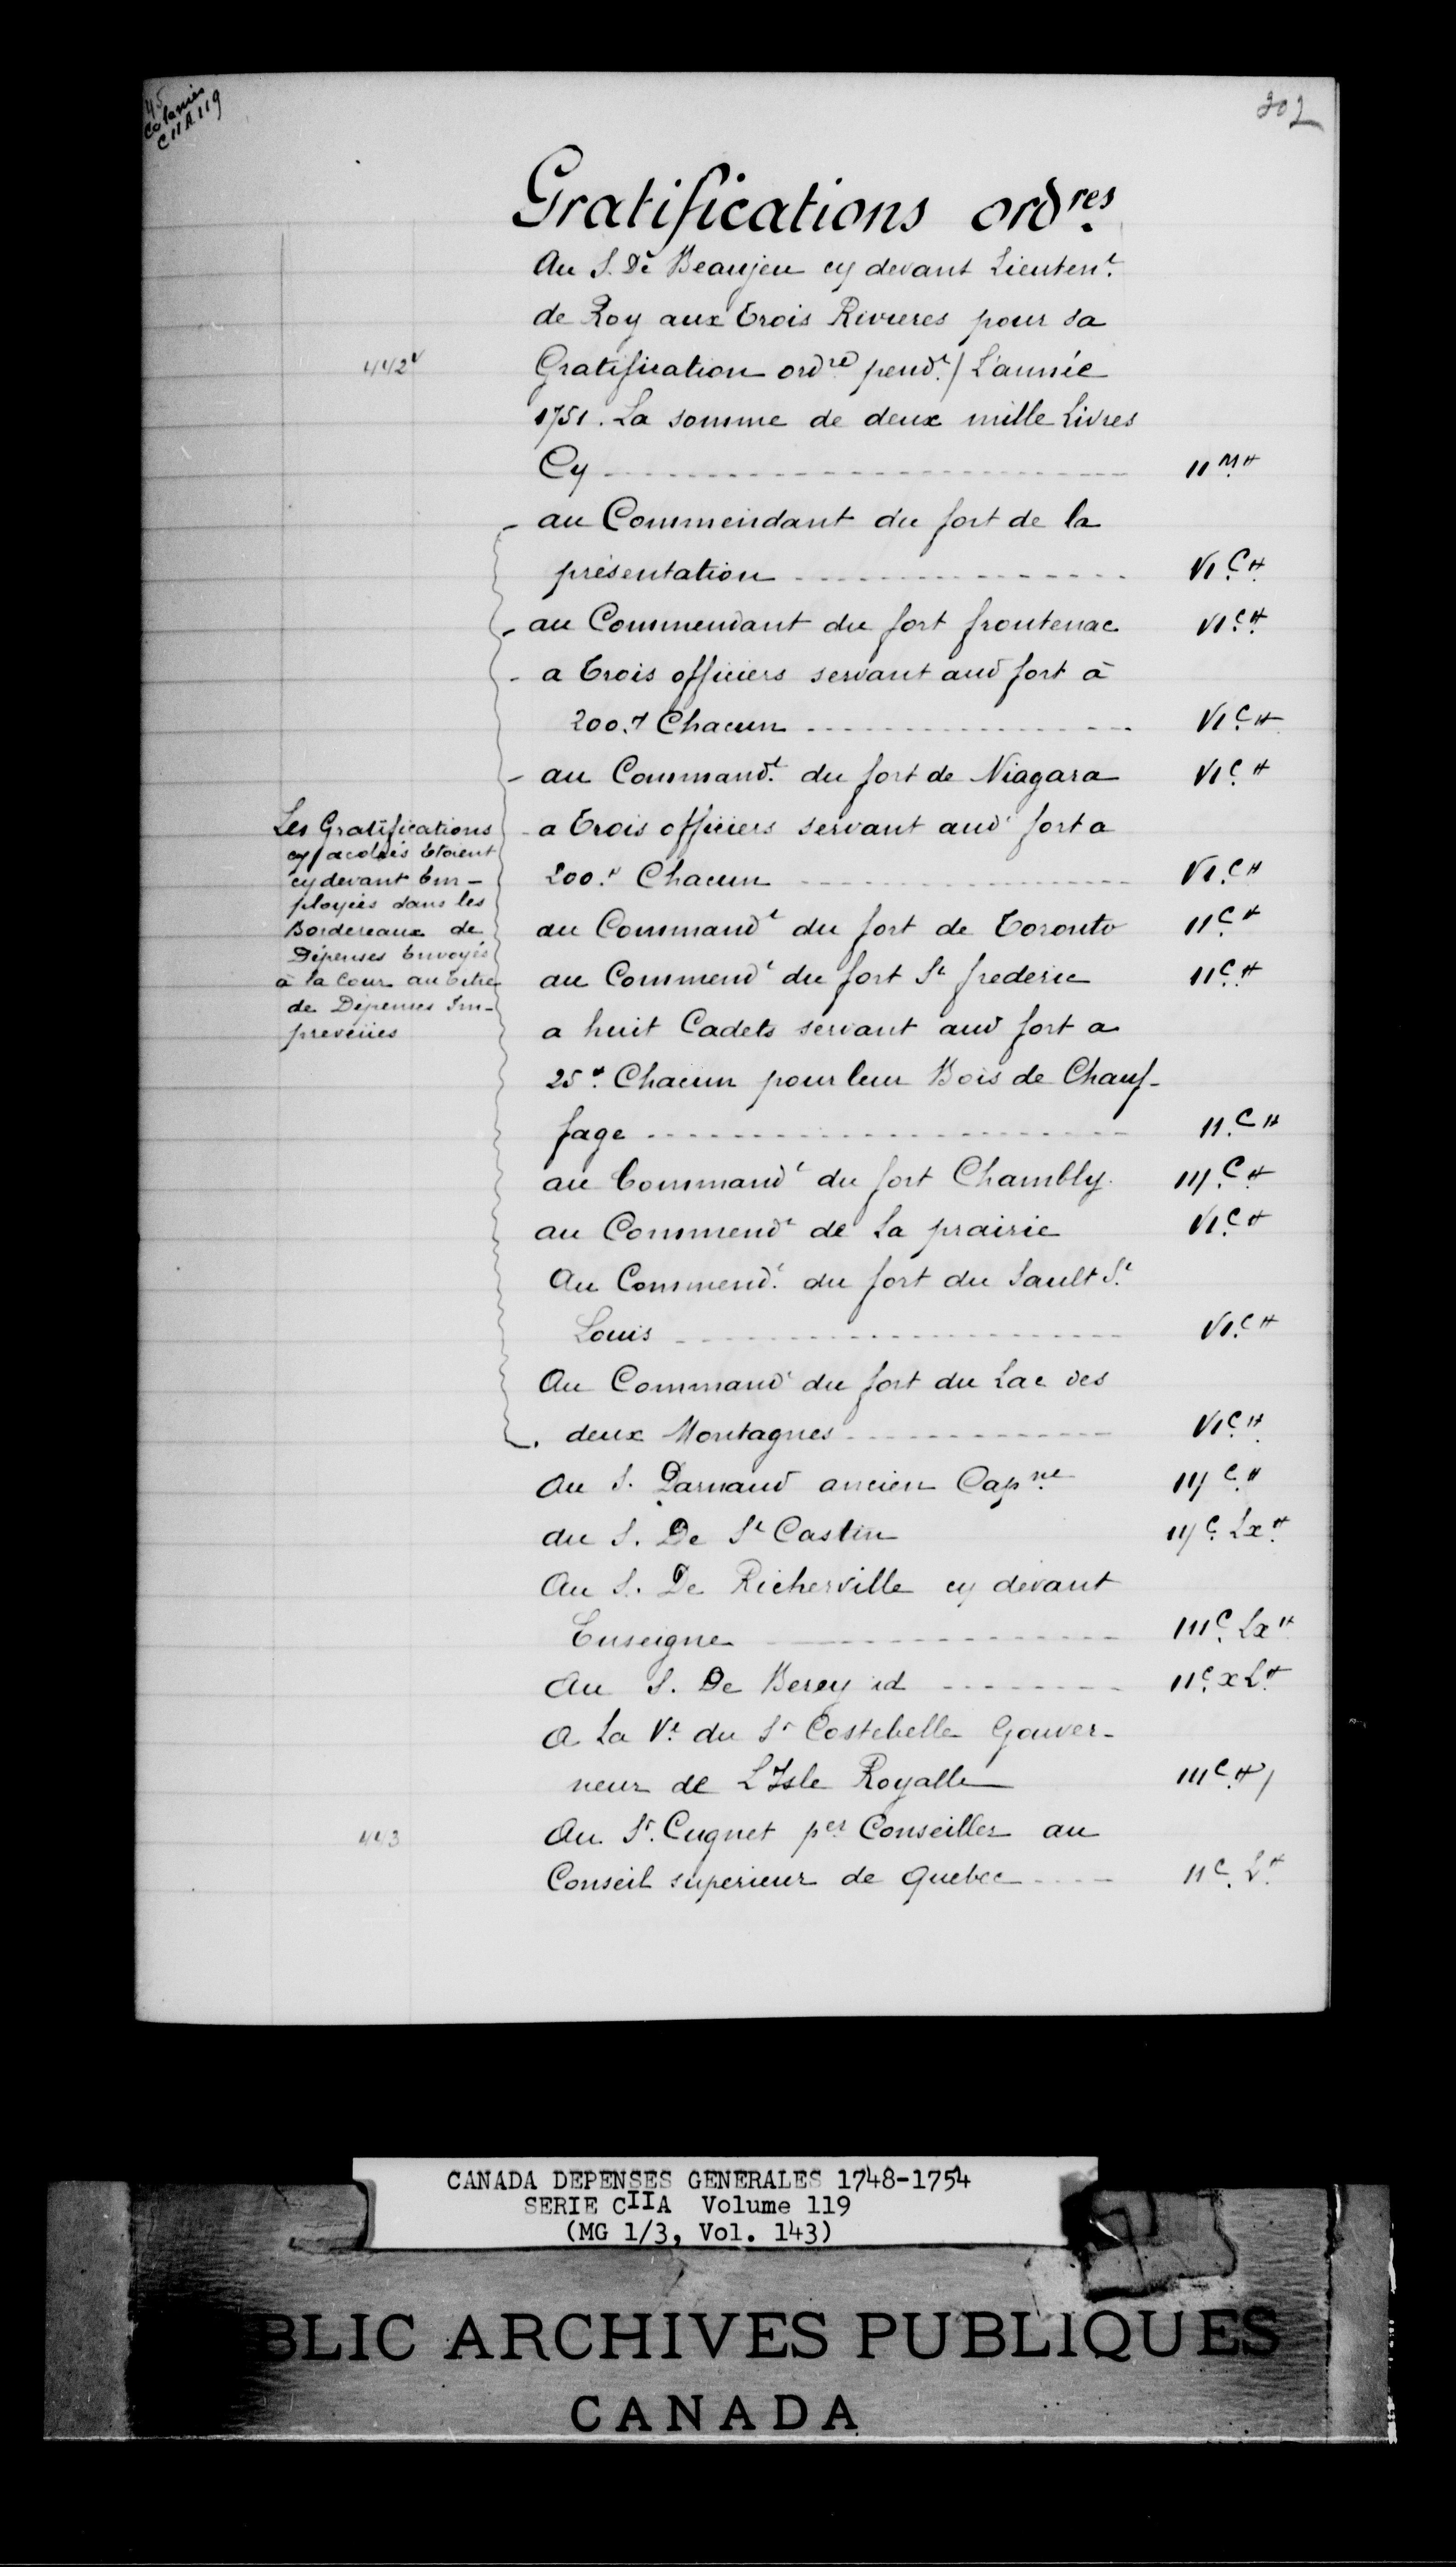 45
Colonies
C 11 A 119
202
Gratifications ord.res
Au S. De Beaujeu cy devant Lieuten.t
de Roy aux trois Rivieres pour sa
442v
Gratification ord.re pend.t / L'année
1751. La somme de deux mille Livres
Cy - - - - - - IIM.#
au Commendant du fort de la
présentation - - - - - - VI.C.#
au Commendant du fort frontenac VI.C.#
a trois officiers servant aud fort à
200.# Chacun - - - - - - VI.C.#
au Command.t du fort de Niagara VI.C.#
a trois officiers servant aud fort a
200.# Chacun - - - - - - VI.C.#
au Commandt du fort de Toronto II.C.#
au Commendt du fort St frederic II.C.#
a huit Cadets servant aud fort a
25.# Chacun pour leur Bois de Chauf-
fage - - - - - - II.C.#
au Commandt du fort Chambly. IIJ.C.#
au Commendt de La prairie VI.C.#
Au Commend.t du fort du Sault S.t
Louis - - - - - - VI.C.#
Au Commandt du fort du Lac des
deux Montagnes - - - - - - VI.C.#
Les Gratifications
cy acolées Etoient
cy devant Em-
ployées dans les
Bordereaux de
Dépenses Envoyés
à la Cour au titre
de Dépenses Im-
preveües
Au S. Darnaud ancien Cap.ne IIJ.C.#
au S. De St Castin IIJ.C. Lx.#
Au S. De Richerville cy devant
Enseigne - - - - - - III.C. Lx#
Au S. De Berey id - - - - - - II.C. xL.#
A La V.e du Sr Costebelle Gouver-
neur de L'Isle Royalle III.C.#/
443
Au Sr. Cugnet p.er Conseiller au
Conseil superieur de Quebec - - - - II.C. L.#
CANADA DEPENSES GENERALES 1748-1754
SERIE CIIA Volume 119
(MG 1/3, Vol. 143)
BLIC ARCHIVES PUBLIQUES
CANADA